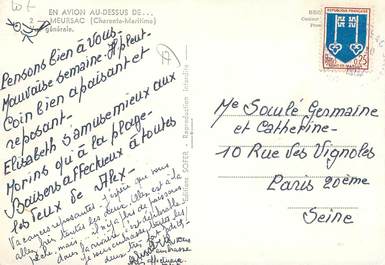 EN AVION AU-DESSUS DE...
2 - MEURSAC (Charente-Maritime)
générale.
Pensons bien à vous-
Mauvaise semaine. Il pleut-
Coin bien apaisant et
reposant-
Elisabeth s'amuse mieux aux
Morins qu'à la plage-
Baisers affectueux à toutes
les deux de Alex-
Vacances reposantes. J'espère que vous
allez bien toutes les deux. Alex est à la
pêche, mais il n'y a pas de poissons
dans la rivière
je vous embrasse toutes les
deux
Editions SOFER - Reproduction Interdite
REPUBLIQUE FRANÇAISE
0,25
POSTES
MONT-DE-MARSAN
Me Soulé Germaine
et Catherine-
10 Rue des Vignoles
Paris 20ème
Seine